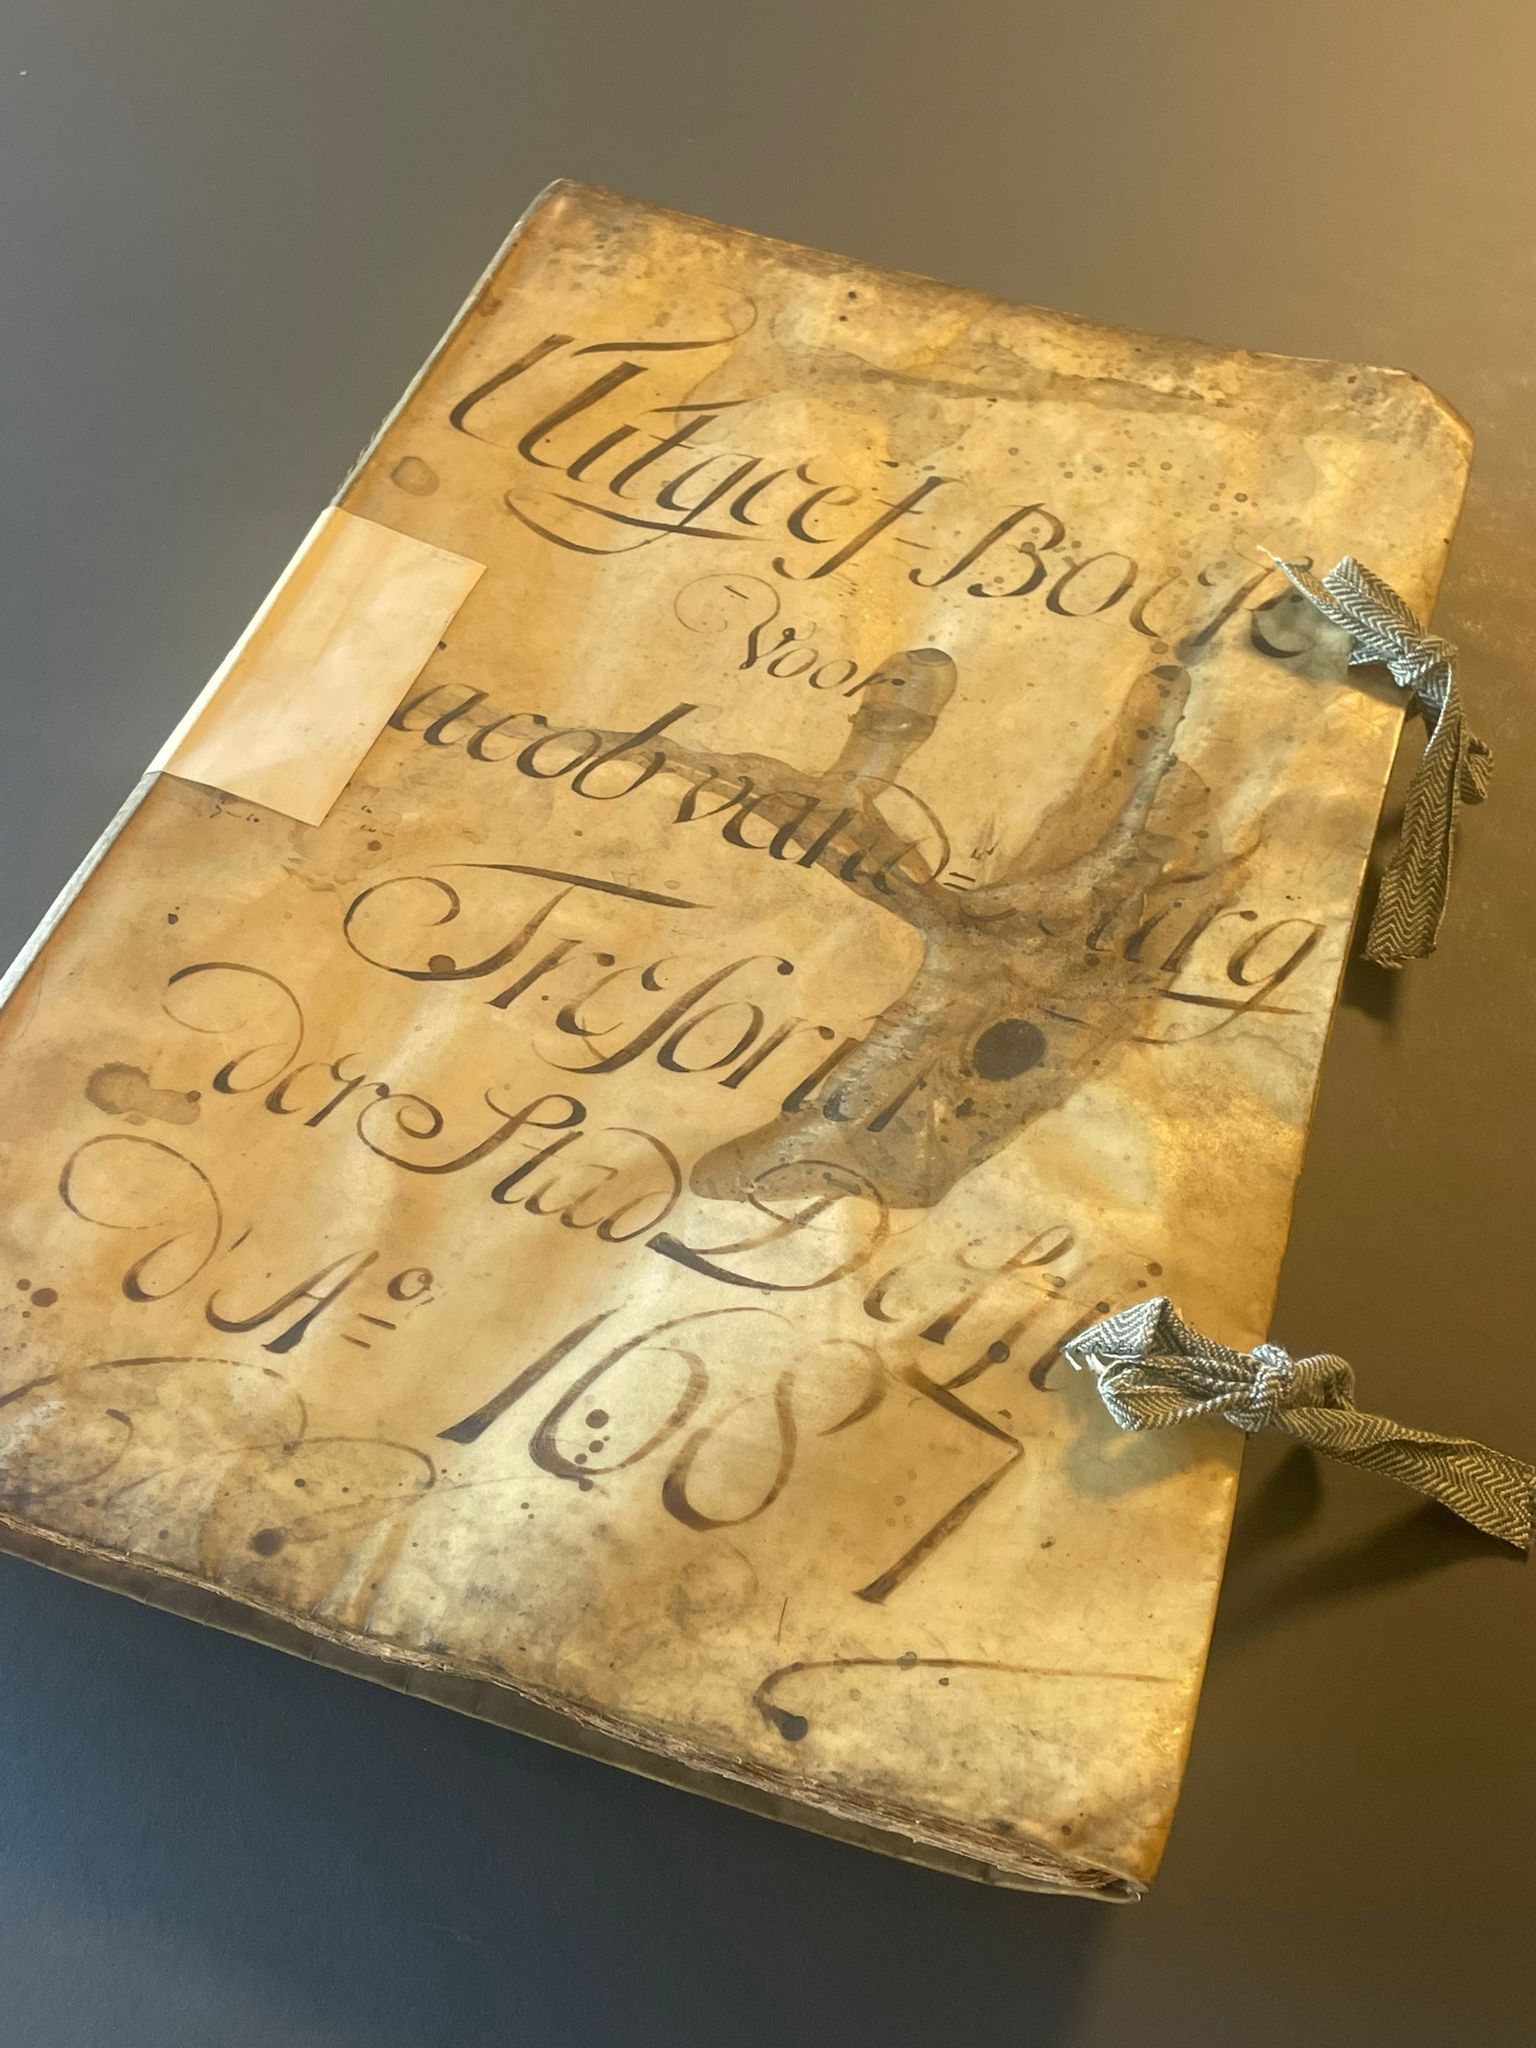 Uitgeef-Boek
Voor
acob vand=
Tresorier
der Stad Delft
d'Aº 1687